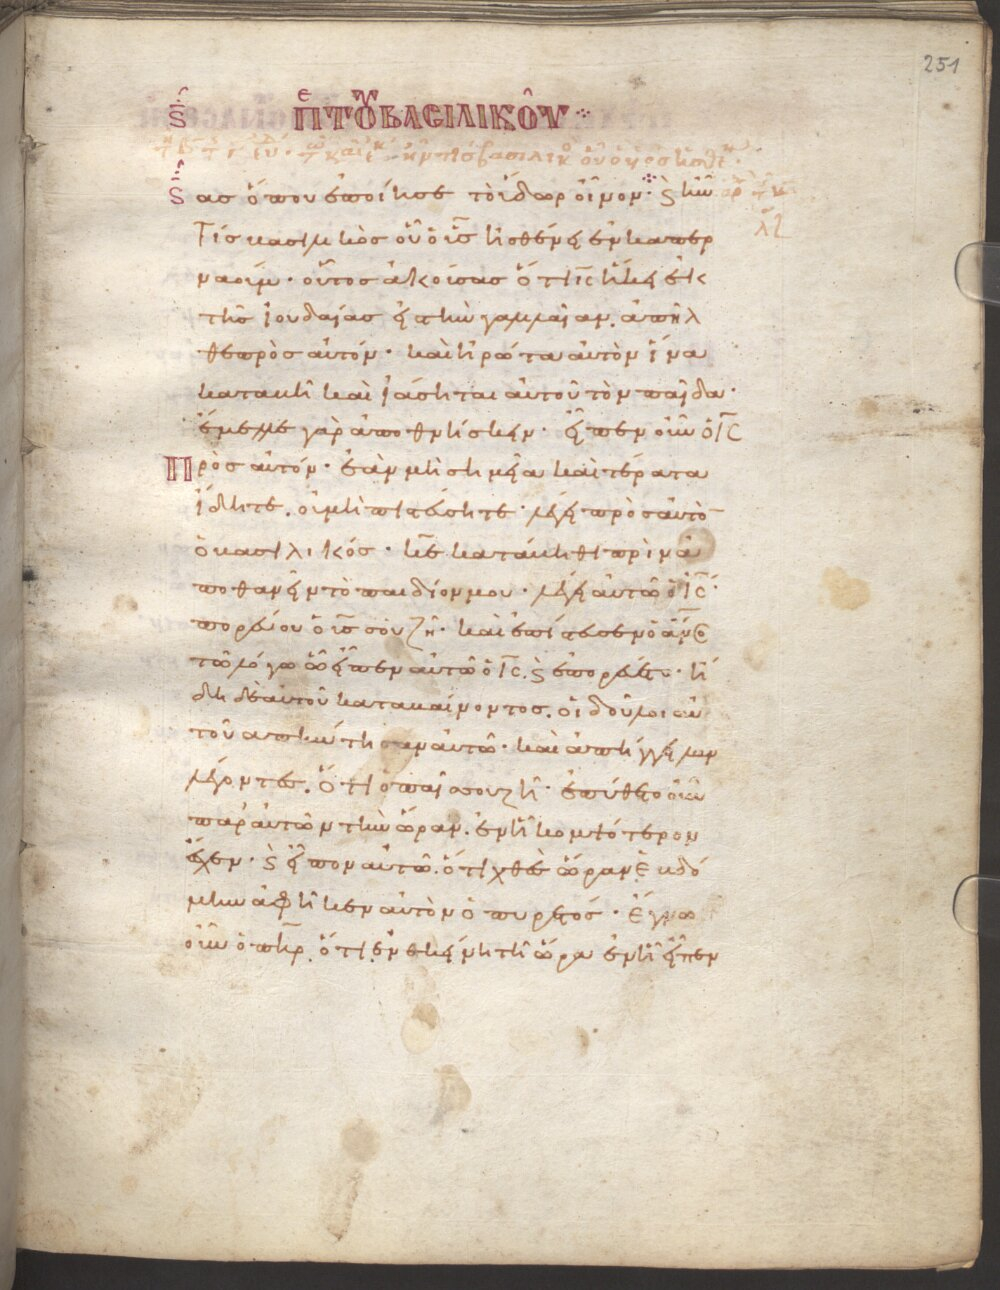 251
ϛ ΠΕΡΙ ΤΟΥ ΒΑΣΙΛΙΚΟΥ
ας ὅπου ἐποίησε τὸ ὕδωρ οἶνον· ϛ ἦν
Τὶς βασιλικὸς οὗ ὁ υἱὸς ἠσθένει ἐν καπερ
ναούμ· οὗτος ἀκούσας ὅτι ις ἥκει ἐκ
τῆς Ἰουδαίας εἰς τὴν γαλιλαίαν, ἀπῆλ
θε πρὸς αὐτόν· καὶ ἠρώτα αὐτὸν ἵνα
καταβῆ καὶ ἰάσηται αὐτοῦ τὸν παῖδα·
ἔμελλε γὰρ ἀποθνήσκειν· εἶπεν οὖν ὁ ΙС
Πρὸς αὐτόν· ἐὰν μὴ σημεῖα καὶ τέρατα
ἴδητε, οὐ μὴ πιστεύσητε· λέγει πρὸς αὐτὸ
ὁ βασιλικός· κε κατάβηθι πρὶν ἀ
ποθανεῖν τὸ παιδίον μου· λέγει αὐτῶ ὁ ΙС·
πορεύου ὁ υς σου ζῆ· καὶ ἐπίστευσεν ὁ ανος
τῶ λόγω ὧ εἶπεν αὐτῶ ὁ ΙС, ϛ ἐπορεύετο· ἤ
δη δὲ αὐτοῦ καταβαίνοντος, οἱ δοῦλοι αὐ
τοῦ ἀπήντησαν αὐτῶ· καὶ ἀπήγγειλαν
λέγοντες, ὅτι ὁ παῖς σου ζῆ· ἐπύθετο οὖν
παρ' αὐτῶν τὴν ὥραν, ἐν ἧ κομψότερον
ἔσχεν· ϛ εἶπον αὐτῶ, ὅτι χθὲς ὥραν ἑβδό
μην ἀφῆκεν αὐτὸν ὁ πυρετός· ἔγνω
οὖν ὁ πηρ, ὅτι ἐν ἐκείνη τῆ ὥρα ἐν ἧ εἶπεν